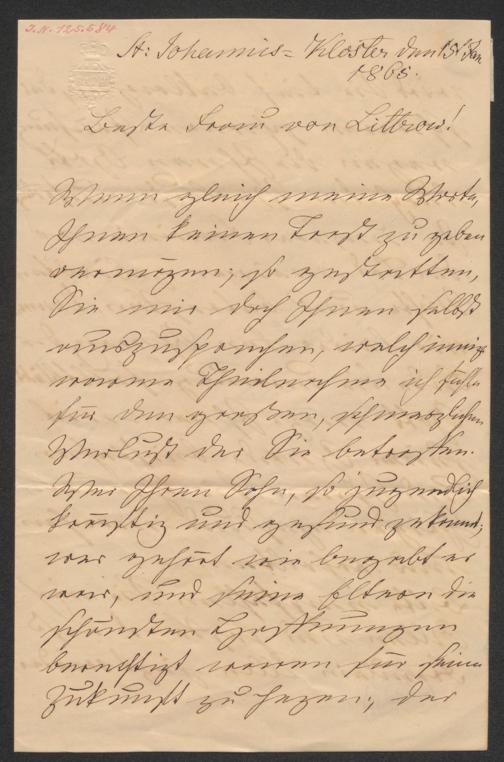 J.N. 125.584
St: Johannis-Kloster den 15t Jan
1865.
Beste Frau von Littrow!
Wenn gleich meine Worte,
Ihnen keinen Trost zu geben
vermögen; so gestatten,
Sie mir doch Ihnen selbst
auszusprechen, welch innig
warme Theilnahme ich fühle
für den großen, schmerzlichen
Verlust der Sie betroffen.
Wer Ihren Sohn, so jugendlich
kräftig und gesund gekannt;
wer gehört wie begabt er
war, und seine Eltern die
schönsten Hoffnungen
berechtigt waren für seine
Zukunft zu hegen; der